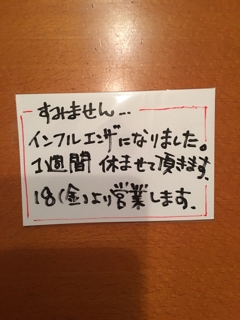 すみません…
インフルエンザになりました。
1週間 休ませて頂きます。
18(金)より営業します。